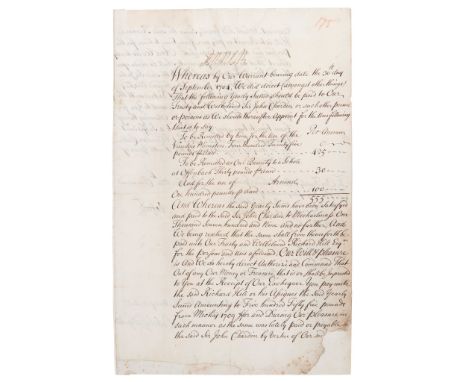 175
Whereas by Our Warrant bearing date the 30th day
of September 1704, We did direct (amongst other things)
That the following Yearly Sums should be paid to Our
Trusty and Welbeloved Sir John Chardin or such other person
or persons as We should thereafter Appoint for the Uses following
that is to say,
To be Remitted by him for the Use of the Per Annum
Vaudois Ministers Four hundred Twenty five
pounds 425
To be Remitted as Our Bounty to a School
at Thirty pounds 30
And for the use of Arnaud
One hundred pounds 100
555
And Whereas the said Yearly Sums have been Satisfyed
and paid to the said Sir John Chardin to Michaelmas One
Thousand Seven hundred and Nine and no further And
We being resolved that the same shall from thenceforth be
paid unto Our Trusty and Welbeloved Richard Hill Esqr
for the persons and uses aforesaid. Our Will & pleasure
is And We do hereby direct Authorize and Command That
Out of any Our Money or Treasure that is or shall be imprested
to You at the Receipt of Our Exchequer You pay unto
the said Richard Hill or his Assignes the said Yearly
Sums Amounting to Five hundred Fifty five pounds
from Michas 1709 for and During Our Pleasure in
such manner as the same was lately paid or payable to
the said Sir John Chardin by Vertue of Our said